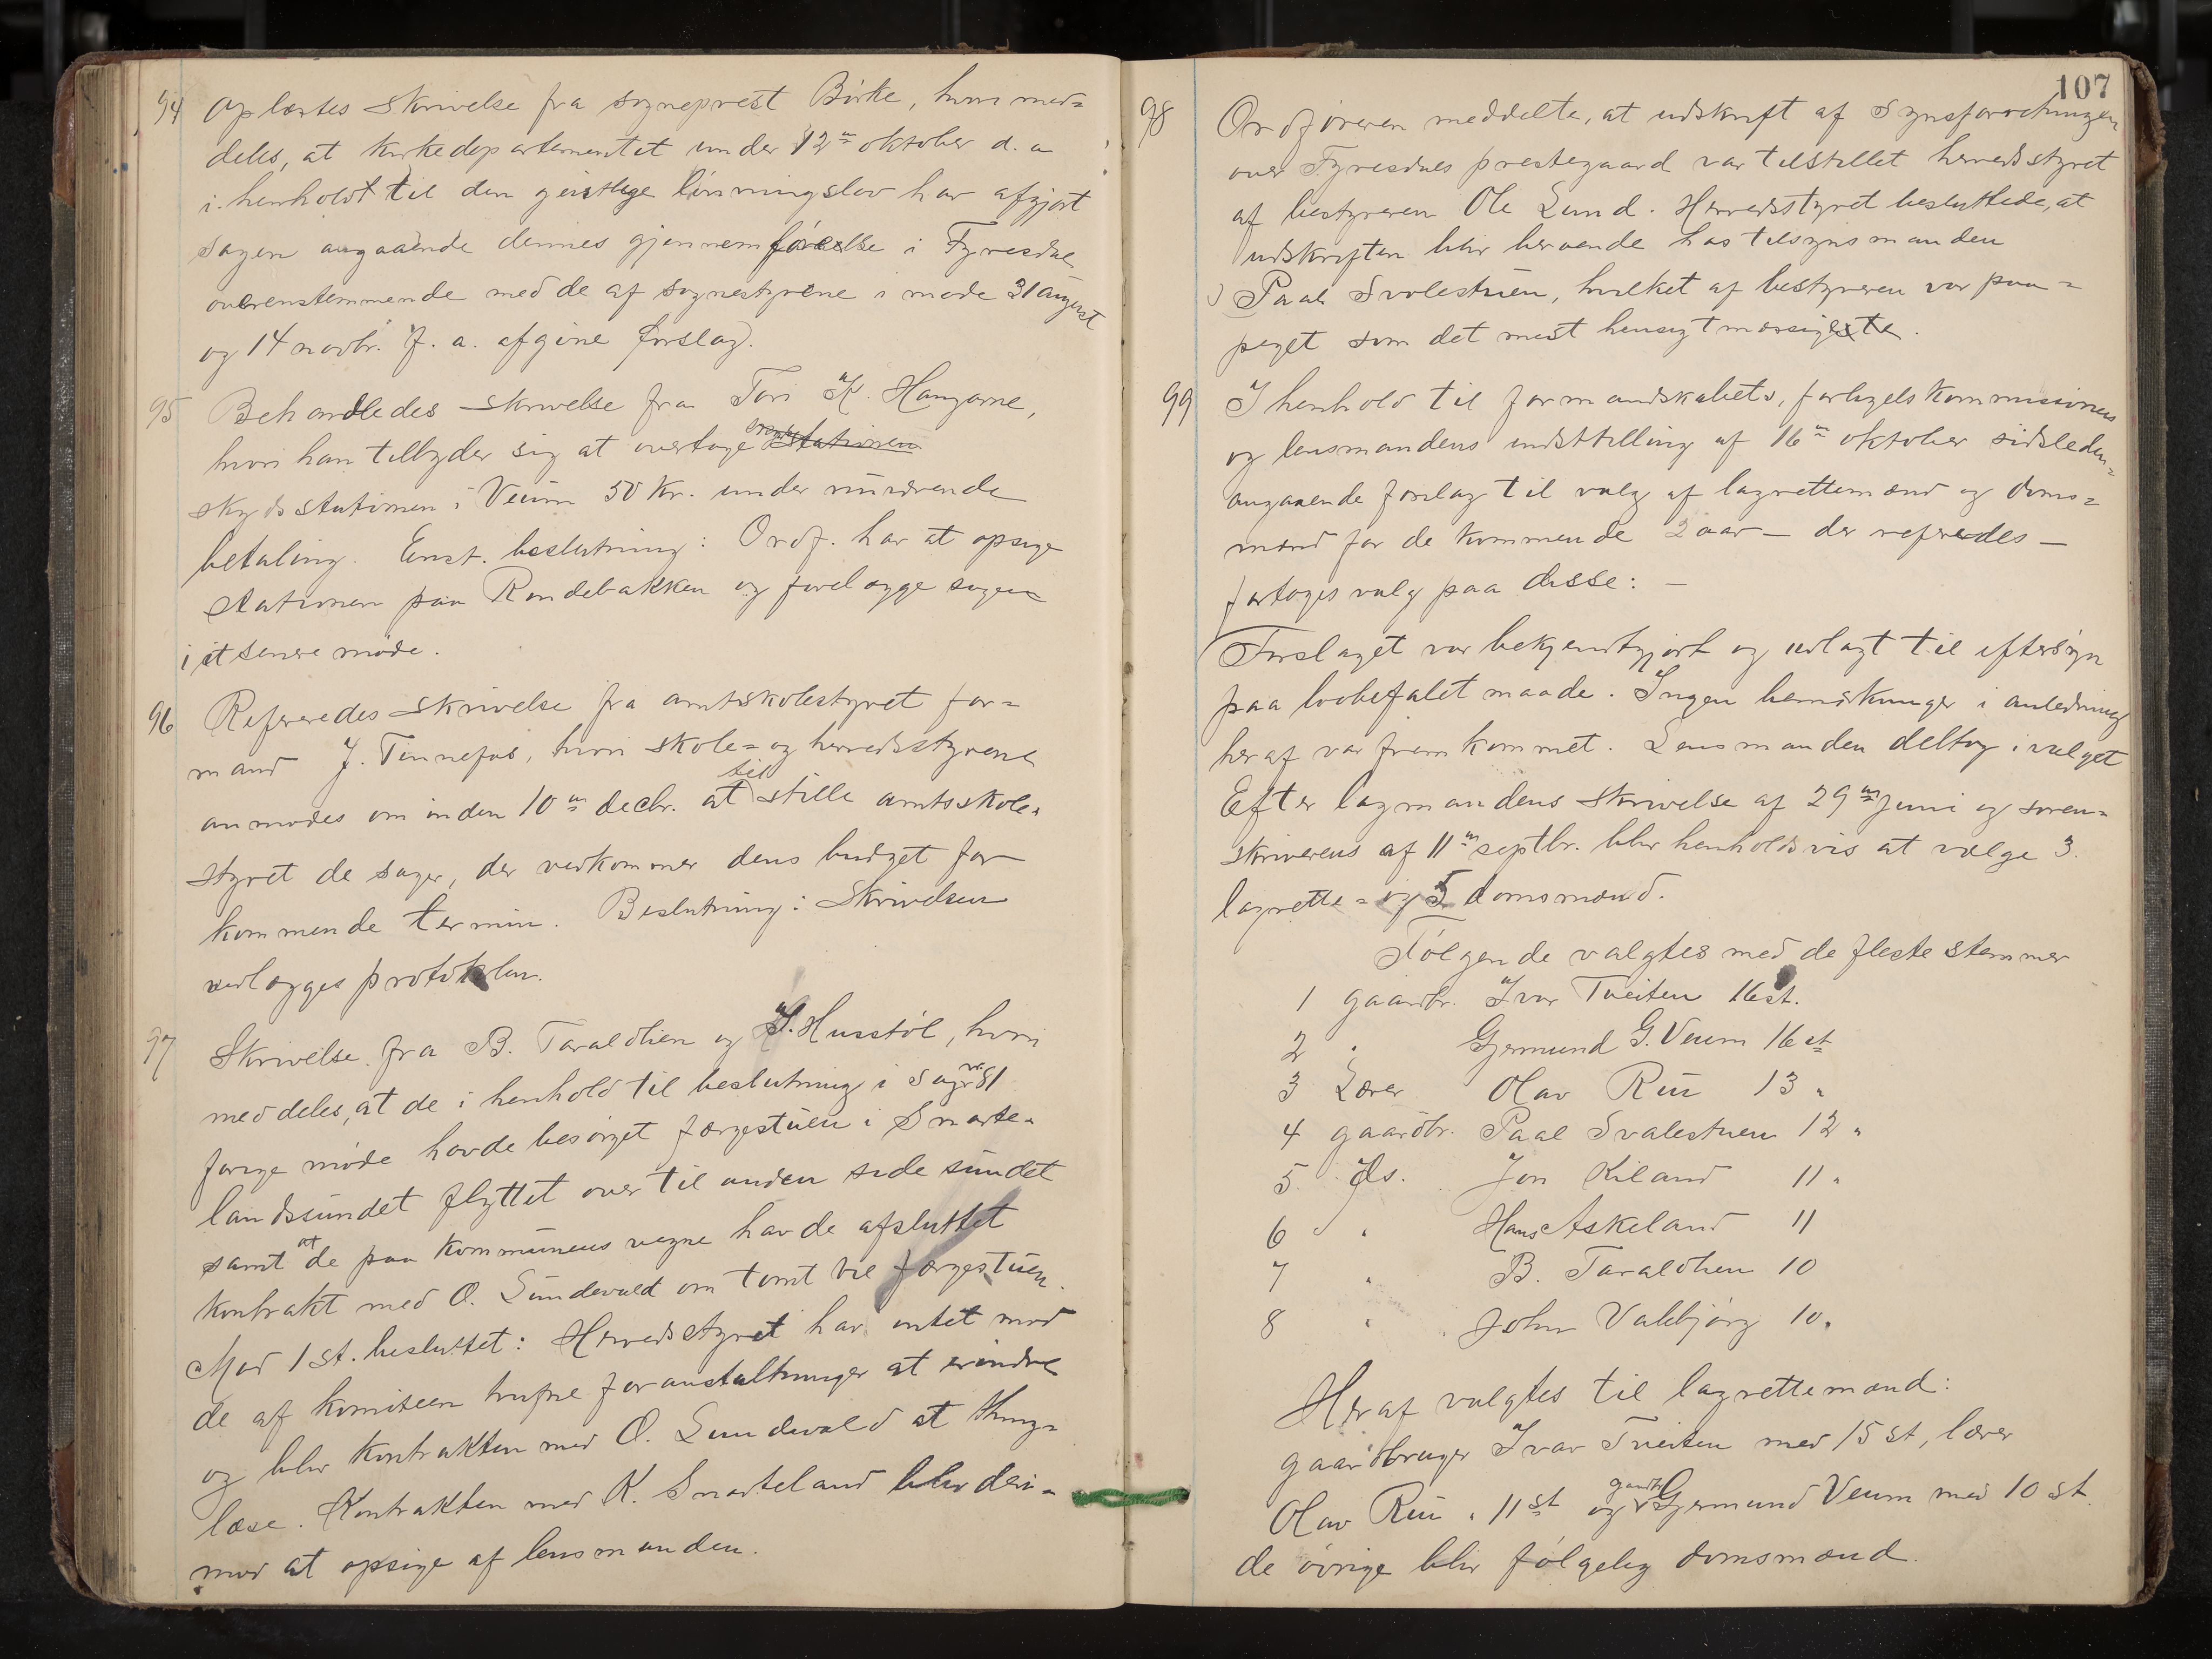 94 Oplæstes skrivelse fra sogneprest Birke, hvori med=
deles, at kirkedepartementet under 12te oktober d. a
i henholdt til den geistlige lønningslov har afgjort
sagen angaaende dennes gjennemførelse i Fyresdal
overenstemmende med de af sognestyrene i møde 31 august
og 14 novbr. f. a. afgivne forslag.
95 Behandledes skrivelse fra Tov K. Haugarne,
hvori han tilbyder sig at overtage stationen
skydsstationen i Veum 50 kr. under nuværende
betaling. Enst. beslutning: Ordf. har at opsige
stationen paa Rondebakken og forelægge sagen
i et senere møde.
96 Refereredes skrivelse fra amtskolestyret for=
mand J. Tinnefos, hvori skole= og herredsstyrene
anmodes om inden 10de decbr. at tilstille amtsskole=
styret de sager, der vedkommer dens budget for
kommende termin. Beslutning: Skrivelsen
vedlægges protokolen.
97 Skrivelse fra B. Taraldlien og H. Husstøl, hvori
meddeles, at de i henhold til beslutning i sag nr 81
forige møde havde besørget færgestuen i Snarte=
landssundet flyttet over til anden side sundet
samt at de paa kommunens vegne havde afsluttet
kontrakt med O. Sundevald om tomt til færgestuen.
Mod 1 st. besluttet: Herredsstyret har intet mod
de af komiteen trufne foranstaltninger at erindre
og blir kontrakten med O. Sundevald at thing=
læse. Kontrakten med K. Snarteland blir deri=
mod at opsige af lensmanden.
107
98 Ordføreren meddelte, at udskrift af synsforretningen
over Fyresdals prestegaard var tilstillet herredsstyret
af bestyreren Ole Lund. Herredsstyret besluttede, at
udskriften blir beroende hos tilsynsmanden
Paal Svalestuen, hvilket af bestyreren var paa=
peget som det mest hensigtmæssigste.
99 I henhold til formandskabets, forligelskommissionens
og lensmandens indstilling af 16de oktober sidsleden=
angaaende forslag til valg af lagrettemænd og doms=
mænd for de kommende 2 aar — der refereredes —
fortoges valg paa disse: —
Forslaget var bekjendtgjort og udlagt til eftersyn
paa lovbefalet maade. Ingen bemærkninger i anledning
heraf var fremkommet. Lensmanden deltog i valget
Efter lagmandens skrivelse af 29de juni og soren=
skriverens af 11te septbr. blir henholdsvis at vælge 3
lagrette= og 5 domsmænd.
Følgende valgtes med de fleste stemmer
1 gaardbr. Ivar Tveiten 16 st.
2 " Gjermund G. Veum 16 st
3 Lærer Olav Rui 13 "
4 gaardbr. Paal Svalestuen 12 "
5 ds. Jon Kiland 11 "
6 " Hans Askeland 11
7 " B. Taraldlien 10
8 " John Vakbjørg 10 "
Heraf valgtes til lagrettemænd:
gaardbruger Ivar Tveiten med 15 st, lærer
Olav Rui " 11 st og gardbr Gjermund Veum med 10 st
de øvrige blir følgelig domsmænd.